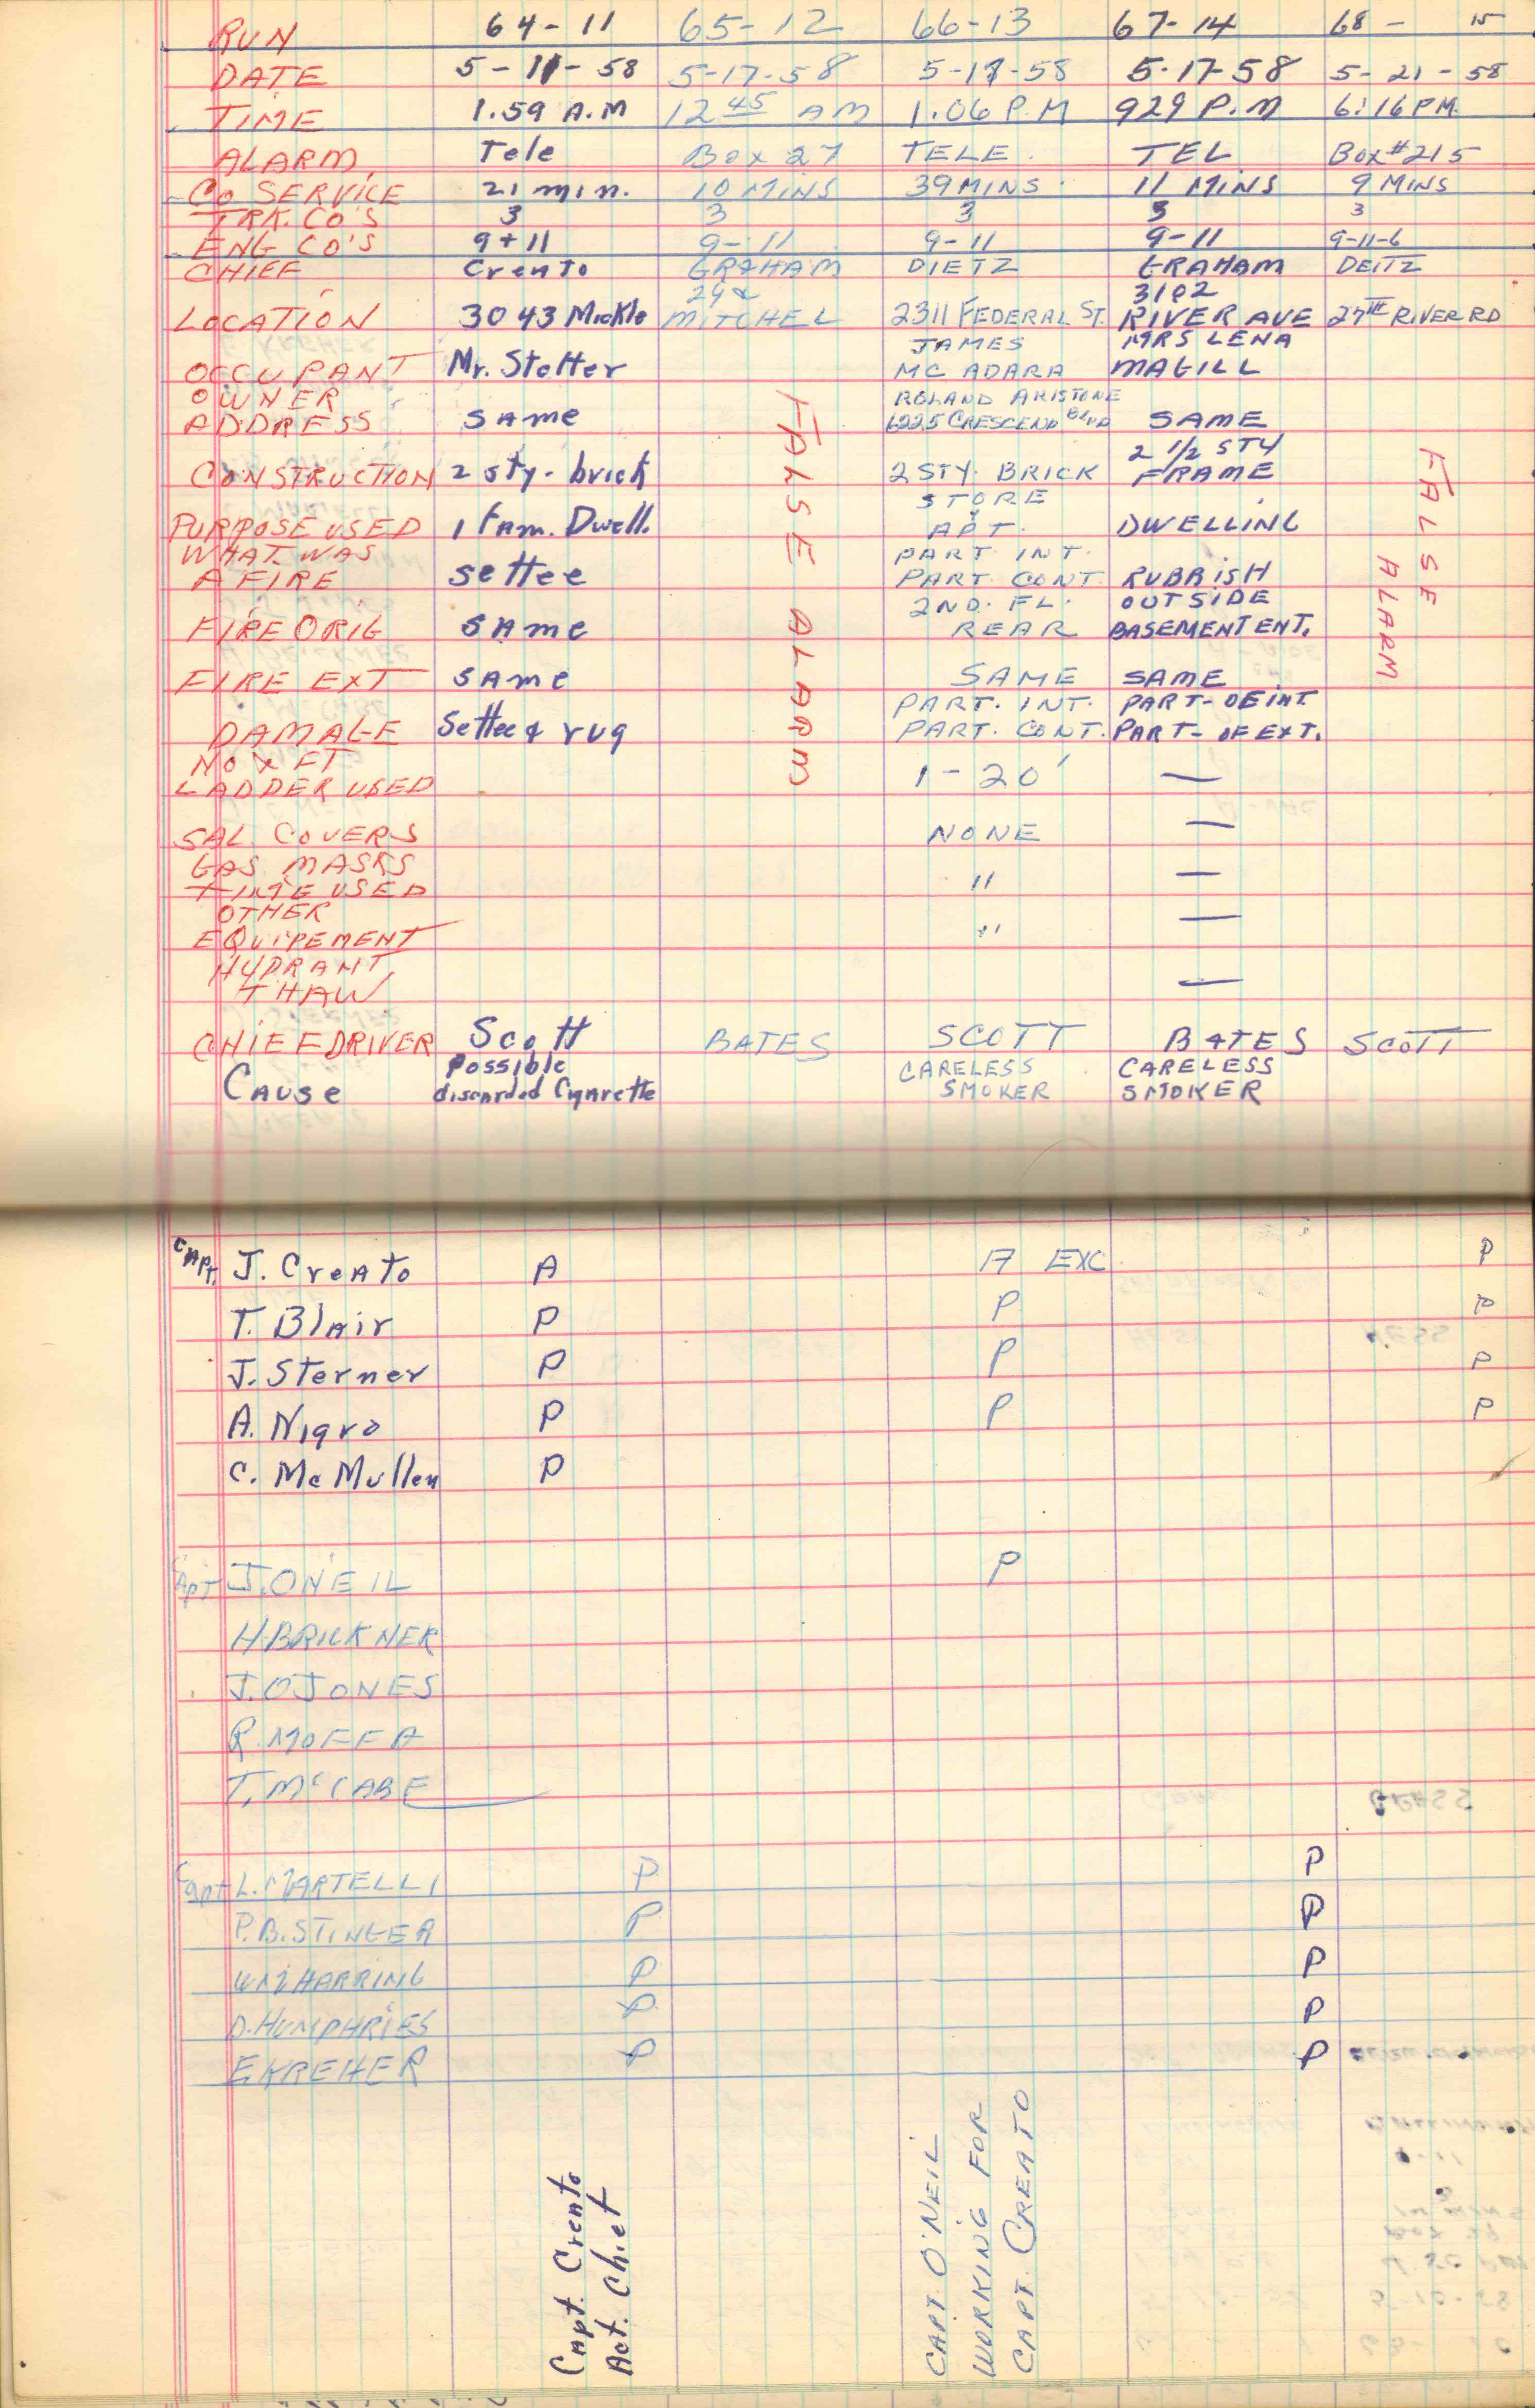 RUN 64-11 65-12 66-13 67-14 68- 15
DATE 5-11-58 5-17-58 5-17-58 5-17-58 5-21-58
TIME 1.59 A.M 12 45 AM 1.06 P.M 929 P.M 6:16 PM.
ALARM. Tele Box 27 TELE. TEL Box #215
CO SERVICE 21 min. 10 MINS 39 MINS. 11 MINS 9 MINS
TRK. CO'S 3 3 3 3 3
ENG CO'S 9+11 9-11 9-11 9-11 9-11-6
CHIEF Creato GRAHAM DIETZ GRAHAM DEITZ
29 & 3102
LOCATION 3043 Mickle MITCHEL 2311 FEDERAL ST. RIVER AVE 27TH RIVER RD
JAMES MRS LENA
OCCUPANT Mr. Stetter MC ADARA MAGILL
OWNER ROLAND ARISTONE
ADDRESS SAme 6225 CRESCEND BLVD SAME
2 1/2 STY
CONSTRUCTION 2 sty- brick 2 STY. BRICK FRAME
STORE
PURPOSE USED 1 Fam. Dwell. APT. DWELLING
WHAT WAS PART INT.
A FIRE settee PART CONT. RUBBISH
2ND. FL. OUTSIDE
FIRE ORIG SAme REAR BASEMENT ENT.
FIRE EXT SAme SAME SAME
PART. INT. PART- OF INT.
DAMAGE Settee & rug PART. CONT. PART- OF EXT.
FALSE ALARM
FALSE
ALARM
NO & FT
LADDER USED 1-20' —
SAL. COVERS NONE —
GAS MASKS
TIME USED " —
OTHER
EQUIPEMENT " —
HYDRANT
THAW —
CHIEF DRIVER Scott BATES SCOTT BATES SCOTT
Possible CARELESS CARELESS
Cause discarded Cigarette SMOKER SMOKER
CAPT. J. Creato A A EXC. P
T. Blair P P P
J. Sterner P P P
A. Nigro P P P
C. McMullen P
CAPT J. ONEIL P
H BRICKNER
J. O JONES
R. MOFFA
T. McCABE
Capt L. MARTELLI P P
P. B. STINGER P P
WM HARRING P P
D. HUMPHRIES P P
E KREHER P P
Capt. Creato
Act. Chief
CAPT. O'NEIL
WORKING FOR
CAPT. CREATO